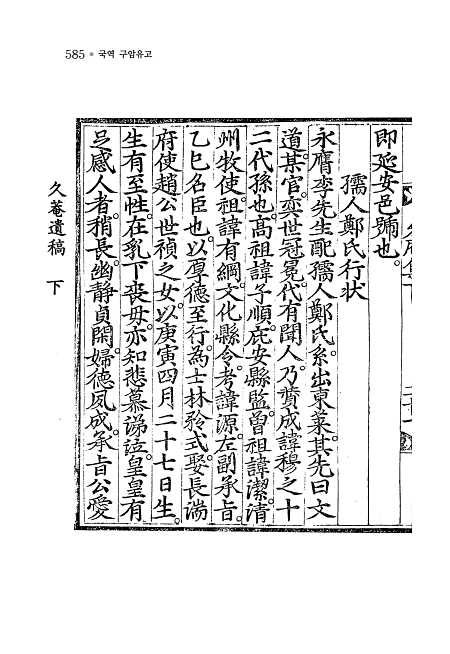 585 ● 국역 구암유고
即延安邑號也。
孺人鄭氏行狀
永膺李先生配孺人鄭氏。系出東萊。其先曰文
道。某官。奕世冠冕。代有聞人。乃贊成諱穆之十
二代孫也。高祖諱子順。庇安縣監。曾祖諱潔。清
州牧使。祖諱有綱。文化縣令。考諱源。左副承旨。
乙巳名臣也。以厚德至行。為士林矜式。娶長湍
府使趙公世禎之女。以庚寅四月二十七日生。
生有至性。在乳下喪母。亦知悲慕。涕泣皇皇。有
足感人者。稍長。幽靜貞閑。婦德夙成。承旨公愛
久菴遺稿 下